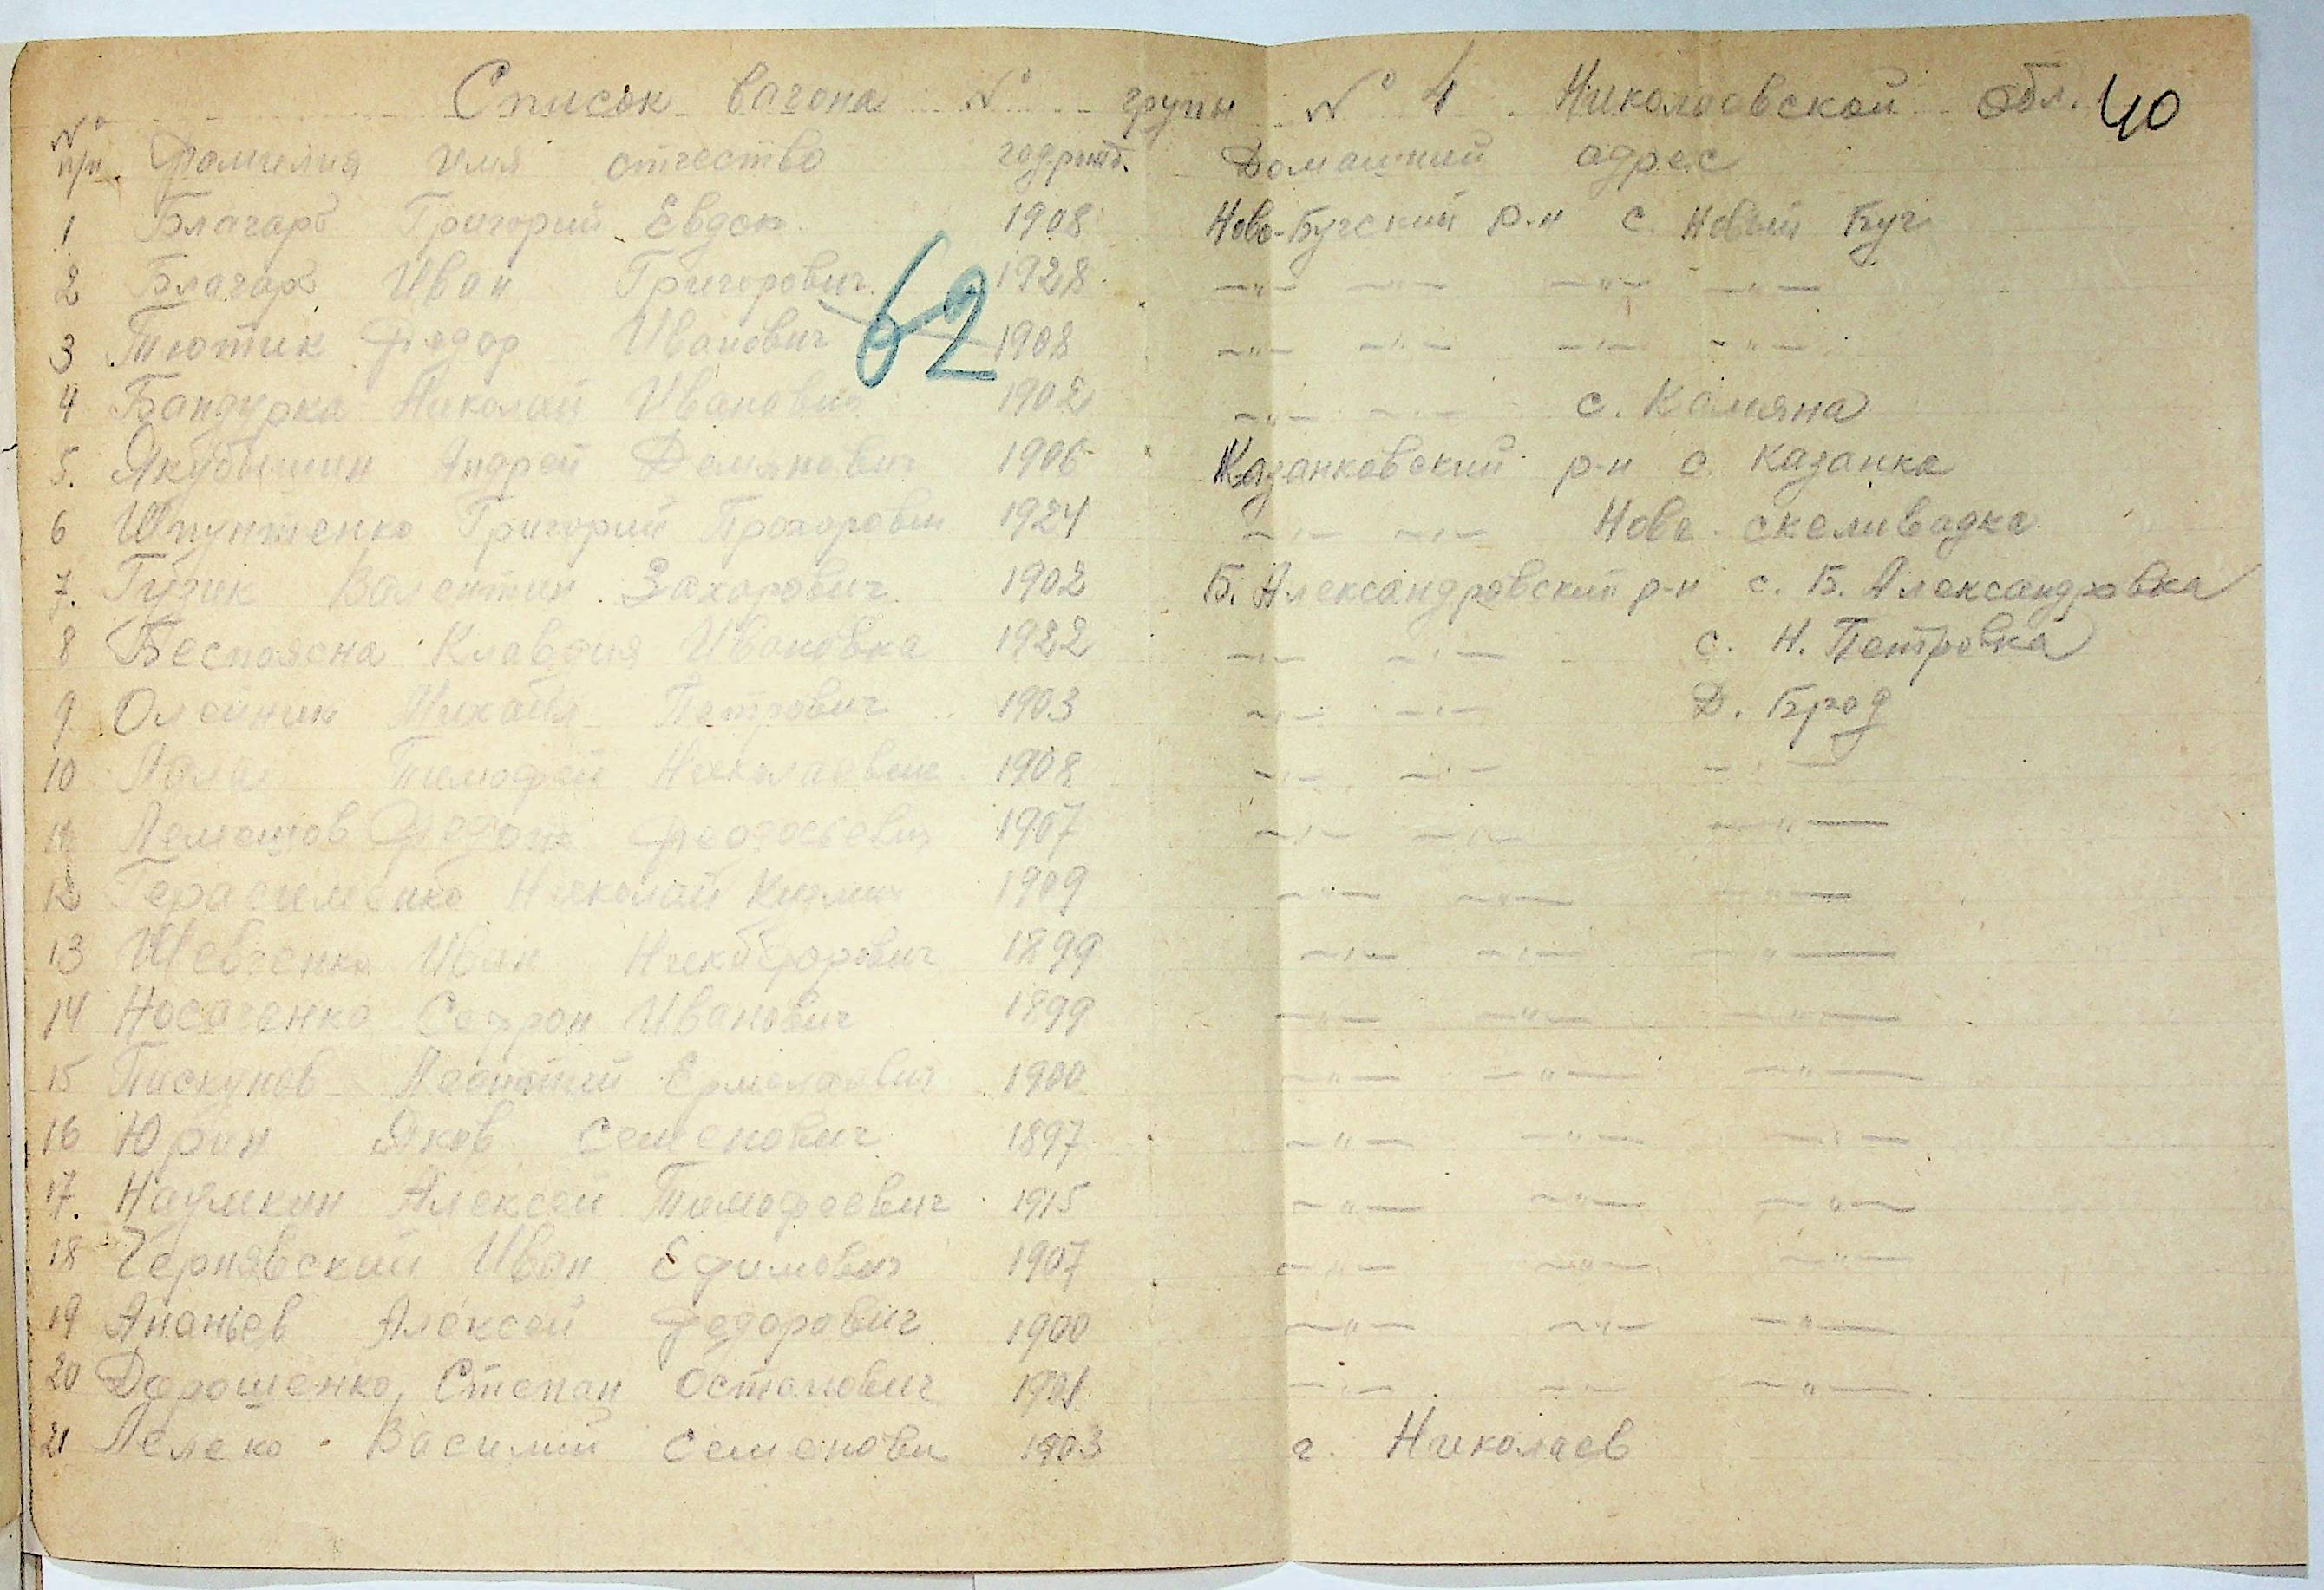 Список вагона № групы № 4 Николаевской обл. 40
№ п/п. Фамилия имя отчество год рожд. Домашний адрес
1 Благарь Григорий Евдок. 1908 Ново-Бугский р-н с. Новый Буг
2 Благарь Иван Григорович 1928 —"— —"— —"— —"—
62
3 Тютик Федор Иванович 1908 —"— —"— —"— —"—
4 Бандурка Николай Иванович 1902 —"— —"— с. Камяна
5. Якубышин Андрей Демянович 1906 Казанковский р-н с. Казанка
6 Шпунтенко Григорий Прохорович 1924 —"— —"— Нова-скеливадка
7. Гудик Валентин Захарович 1902 Б. Александровский р-н с. Б. Александровка
8 Беспоясна Клавдия Ивановна 1922 —"— —"— с. Н. Петровка
9 Олейник Михаил Петрович 1903 —"— —"— Д. Брод
10 Тимофей Николаевич 1908 —"— —"— —"—
11 Федот Феодосьевич 1907 —"— —"— —"—
12 Герасименко Николай 1909 —"— —"— —"—
13 Шевченко Иван Никифорович 1899 —"— —"— —"—
14 Носаченко Софрон Иванович 1899 —"— —"— —"—
15 Пискунов Леонтий Ермолаевич 1900 —"— —"— —"—
16 Юрин Яков Семенович 1897 —"— —"— —"—
17. Наумкин Алексей Тимофеевич 1915 —"— —"— —"—
18 Чернявский Иван Ефимович 1907 —"— —"— —"—
19 Ананьев Алексей Федорович 1900 —"— —"— —"—
20 Дорошенко, Степан Остапович 1901 —"— —"— —"—
21 Лелеко Василий Семенович 1903 г. Николаев